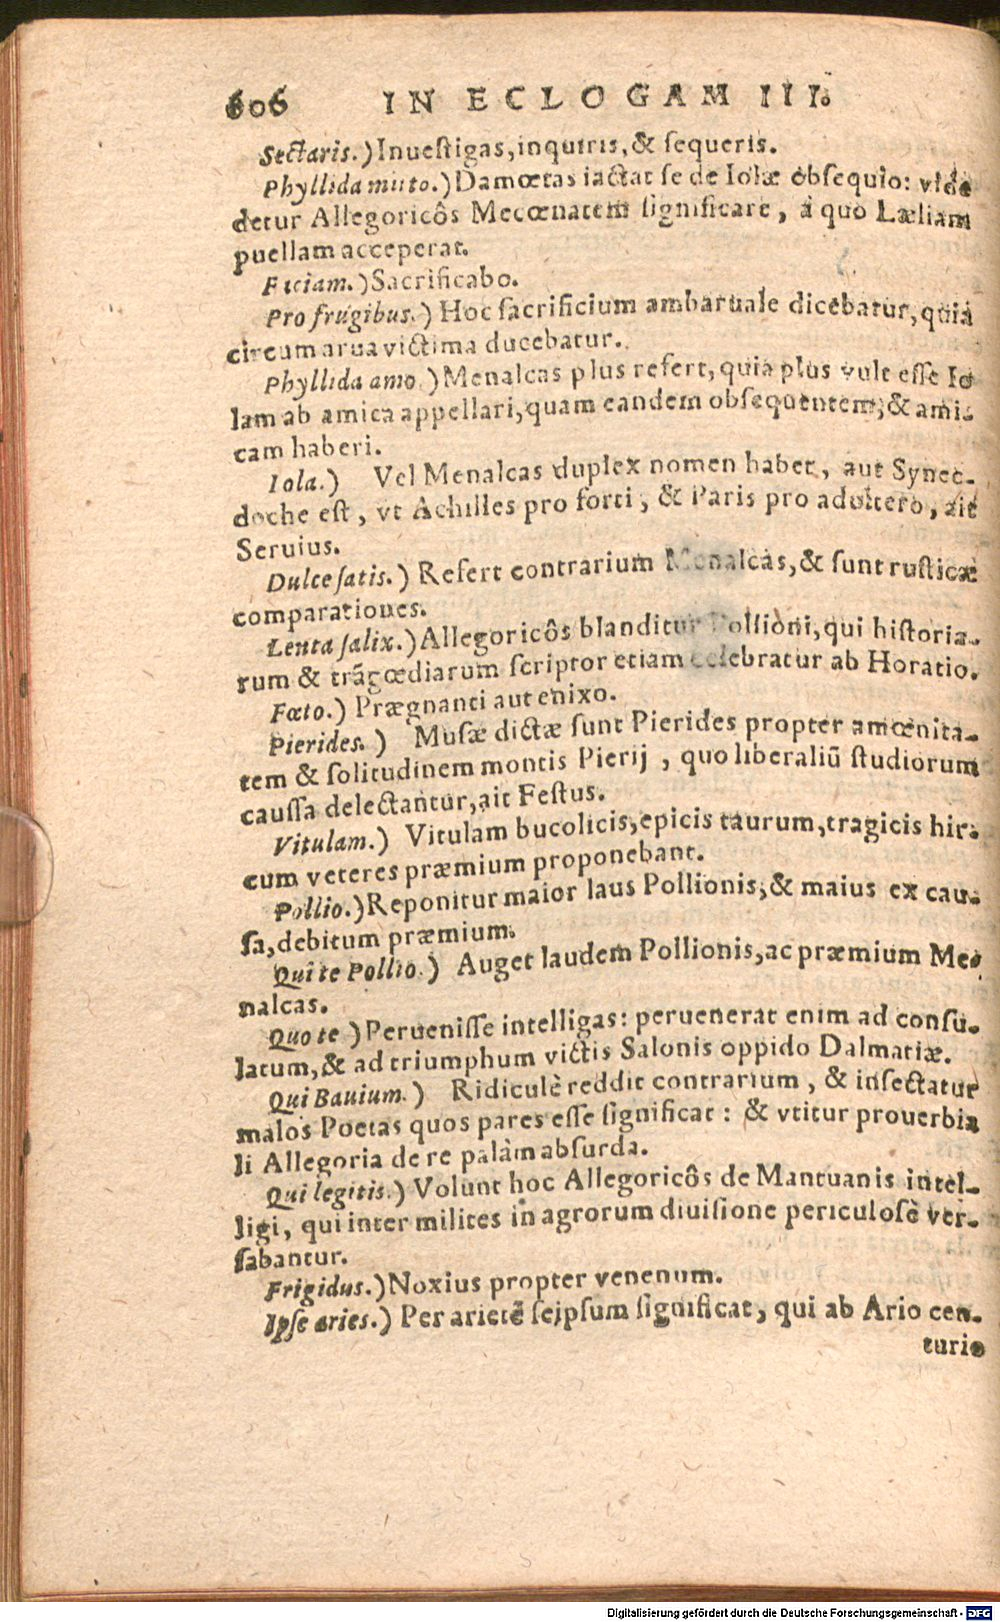 606 IN ECLOGAM III.
Sectaris.) Inuestigas, inquiris, & sequeris.
Phyllida mitto.) Damœtas iactat se de Iolæ obsequio: vide
detur Allegoricôs Mecœnatem significare, à quo Læliam
puellam acceperat.
Faciam.) Sacrificabo.
Pro frugibus.) Hoc sacrificium ambaruale dicebatur, quia
circum arua victima ducebatur.
Phyllida amo.) Menalcas plus refert, quia plus vult esse Io
lam ab amica appellari, quam eandem obsequentem, & ami-
cam haberi.
Iola.) Vel Menalcas duplex nomen habet, aut Synec-
doche est, vt Achilles pro forti, & Paris pro adultero, ait
Seruius.
Dulce satis.) Refert contrarium Menalcas, & sunt rusticæ
comparationes.
Lenta salix.) Allegoricôs blanditur Pollioni, qui historia-
rum & trãgœdiarum scriptor etiam celebratur ab Horatio.
Fœto.) Prægnanti aut enixo.
Pierides.) Musæ dictæ sunt Pierides propter amœnita-
tem & solitudinem montis Pierij, quo liberaliũ studiorum
caussa delectantur, ait Festus.
Vitulam.) Vitulam bucolicis, epicis taurum, tragicis hir-
cum veteres præmium proponebant.
Pollio.) Reponitur maior laus Pollionis, & maius ex cau-
sa, debitum præmium.
Qui te Pollio.) Auget laudem Pollionis, ac præmium Me-
nalcas.
Quo te) Peruenisse intelligas: peruenerat enim ad consu-
latum, & ad triumphum victis Salonis oppido Dalmatiæ.
Qui Bauium.) Ridiculè reddit contrarium, & insectatur
malos Poetas quos pares esse significat: & vtitur prouerbia
li Allegoria de re palàm absurda.
Qui legitis.) Volunt hoc Allegoricôs de Mantuanis intel-
ligi, qui inter milites in agrorum diuisione periculosè ver-
sabantur.
Frigidus.) Noxius propter venenum.
Ipse aries.) Per arietẽ seipsum significat, qui ab Ario cen-
turio
Digitalisierung gefördert durch die Deutsche Forschungsgemeinschaft - DFG